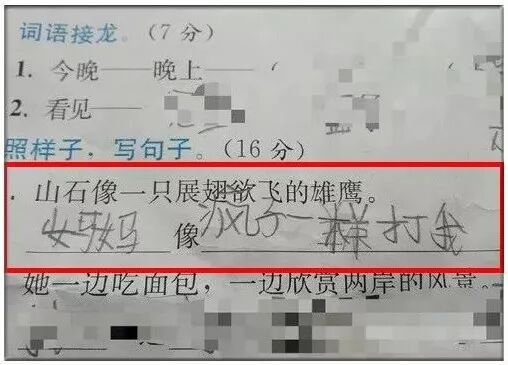 词语接龙。(7分)
1. 今晚——晚上——(
2. 看见——
照样子，写句子。(16分)
. 山石像一只展翅欲飞的雄鹰。
妈妈 像 疯子一样打我
她一边吃面包，一边欣赏两岸的风景。